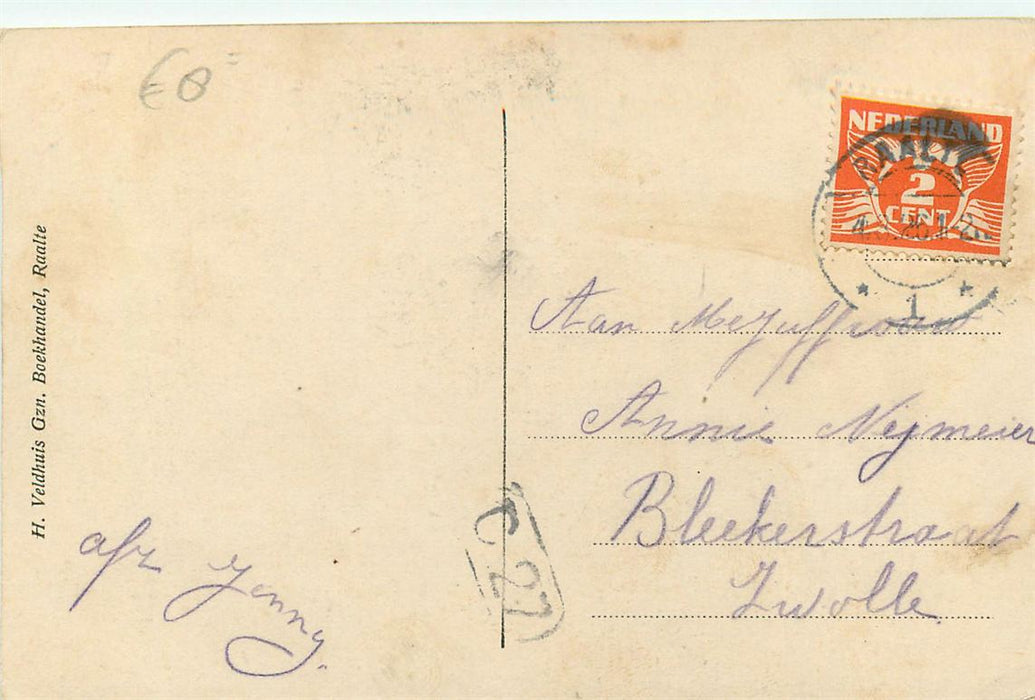 €8
H. Veldhuis Gzn. Boekhandel, Raalte
afz Jenny.
NEDERLAND
2
CENT
RAALTE
1
Aan Mejuffrouw
Annie Nijmeier
Bleekerstraat
Zwolle
C 27